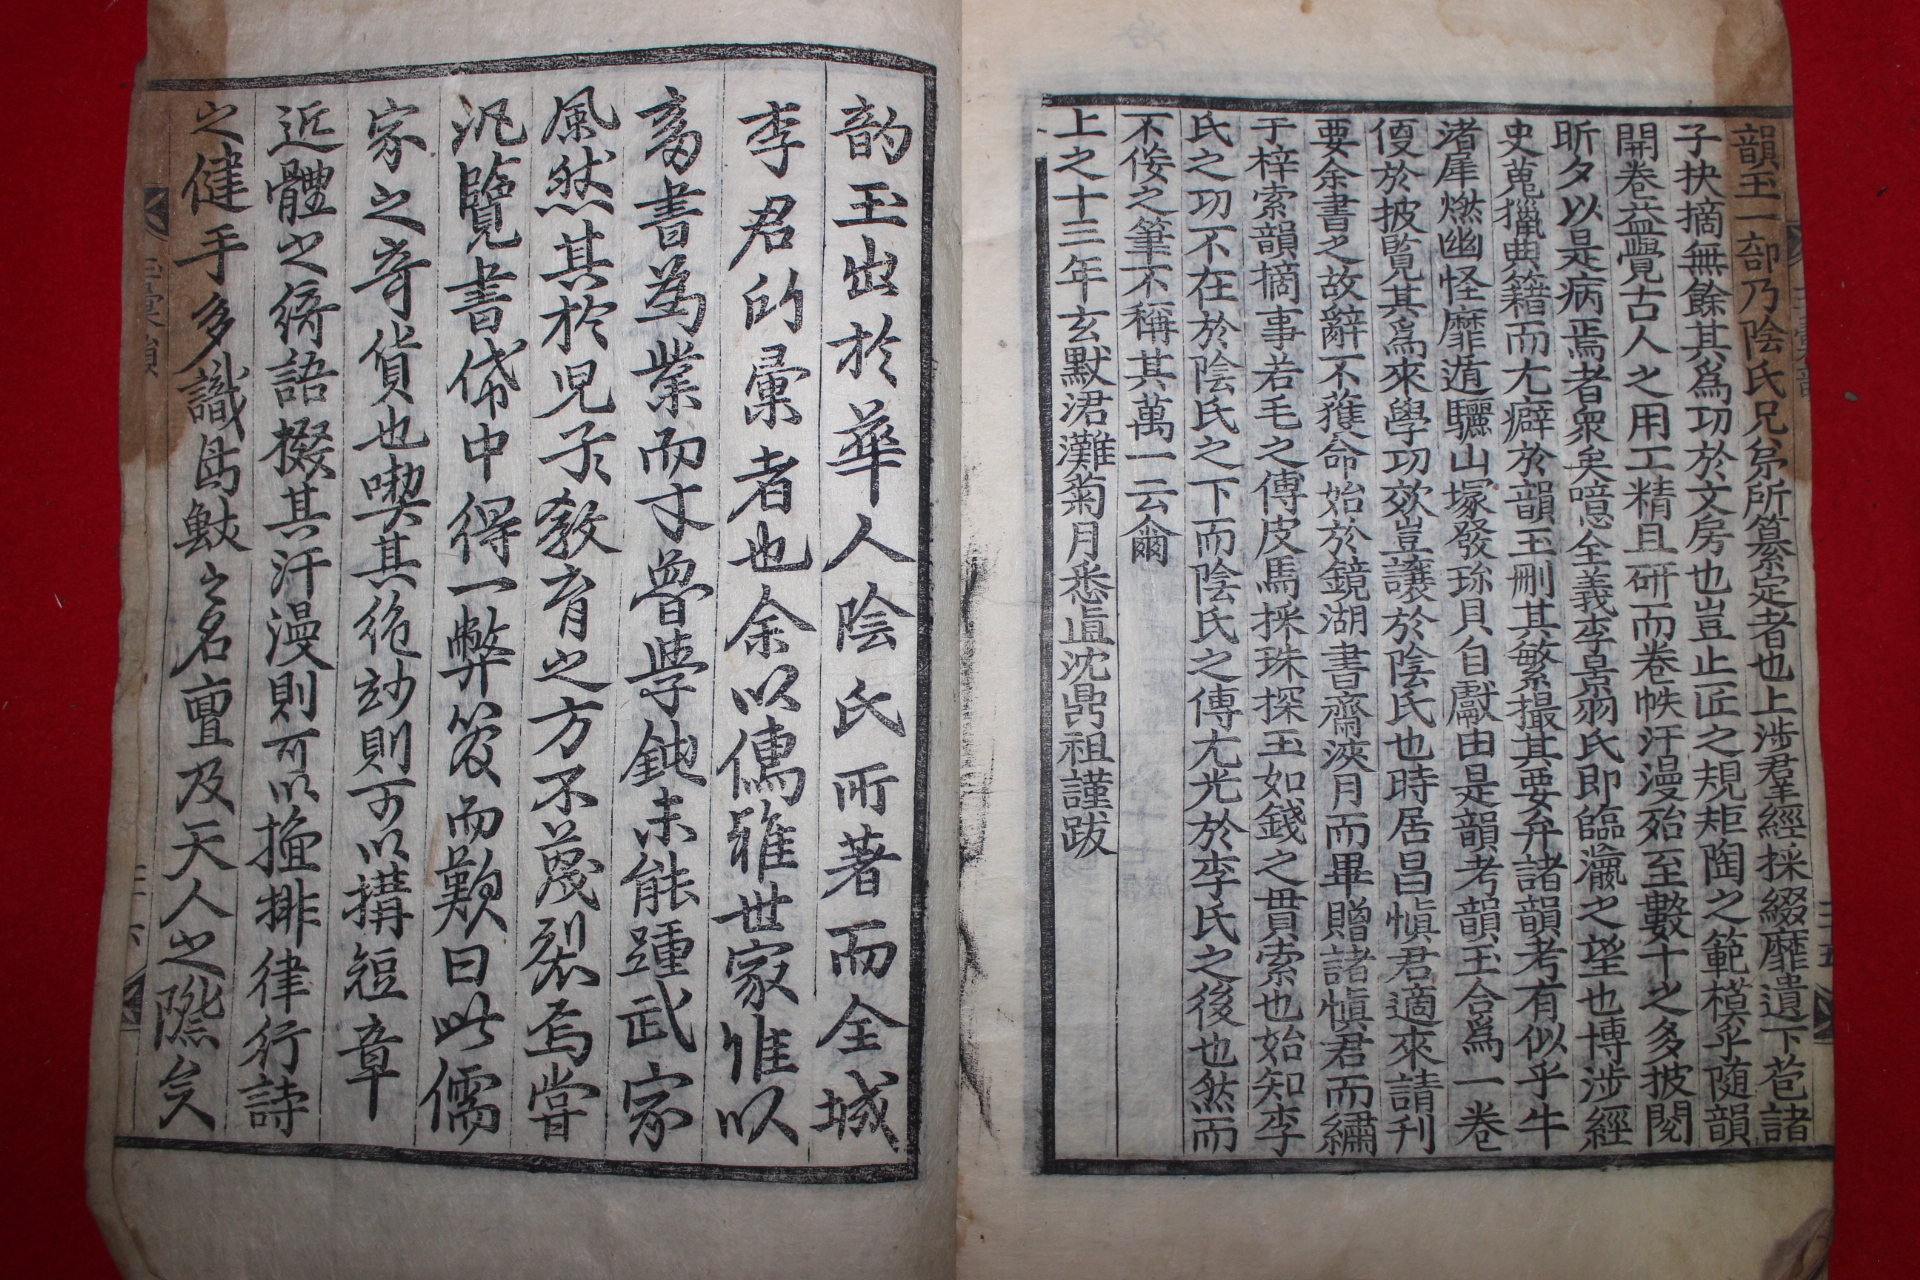 韻玉一部乃陰氏兄弟所纂定者也上涉羣經採綴靡遺下苞諸
子抉摘無餘其爲功於文房也豈止匠之規矩陶之範模乎隨韻
開卷益覺古人之用工精且硏而卷帙汗漫殆至數十之多披閱
昕夕以是病焉者衆矣噫全義李景羽氏卽臨瀛之望也博涉經
史蒐獵典籍而尤癖於韻玉刪其繁撮其要弁諸韻考有似乎牛
渚犀燃幽怪靡遁驪山塚發珎貝自獻由是韻考韻玉合爲一卷
便於披覽其爲來學功效豈讓於陰氏也時居昌愼君適來請刋
要余書之故辭不獲命始於鏡湖書齋浹月而畢贈諸愼君而繡
于梓索韻摘事若毛之傳皮馬採珠探玉如錢之貫索也始知李
氏之功不在於陰氏之下而陰氏之傳尤光於李氏之後也然而
不侫之筆不稱其萬一云爾
上之十三年玄默涒灘菊月悉直沈鼎祖謹跋
韵玉出於華人陰氏所著而全城
李君的彙者也余以儁雅世家惟以
畜書爲業而才魯學鈍未能踵武家
風然其於兒子教育之方不蔑裂焉嘗
汎覽書帒中得一弊笈而歎曰此儒
家之奇貨也喫其絶玅則可以搆短章
近體之綺語掇其汗漫則可以搔排律行詩
之健手多識馬鮁之名亶及天人之際矣